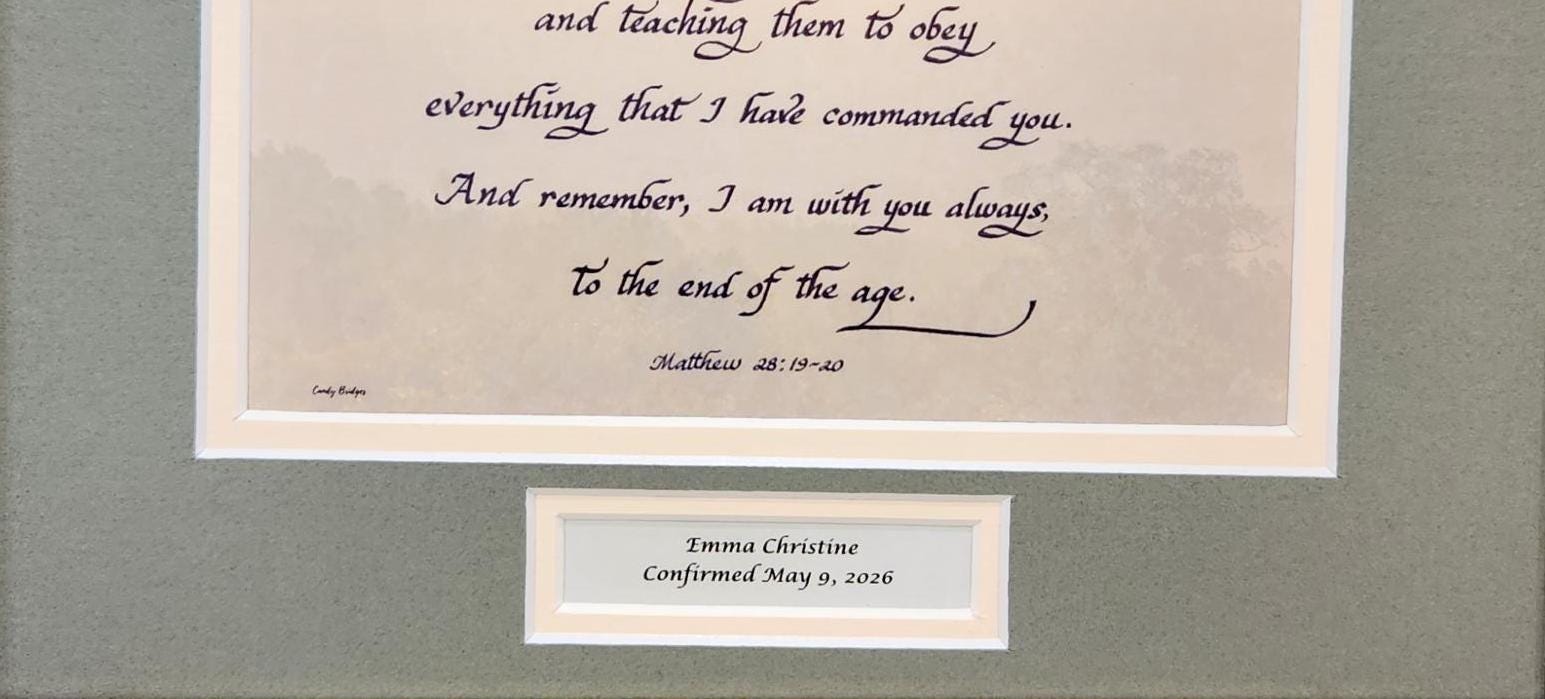 and teaching them to obey
everything that I have commanded you.
And remember, I am with you always,
to the end of the age.
Matthew 28:19-20
Candy Bridges
Emma Christine
Confirmed May 9, 2026